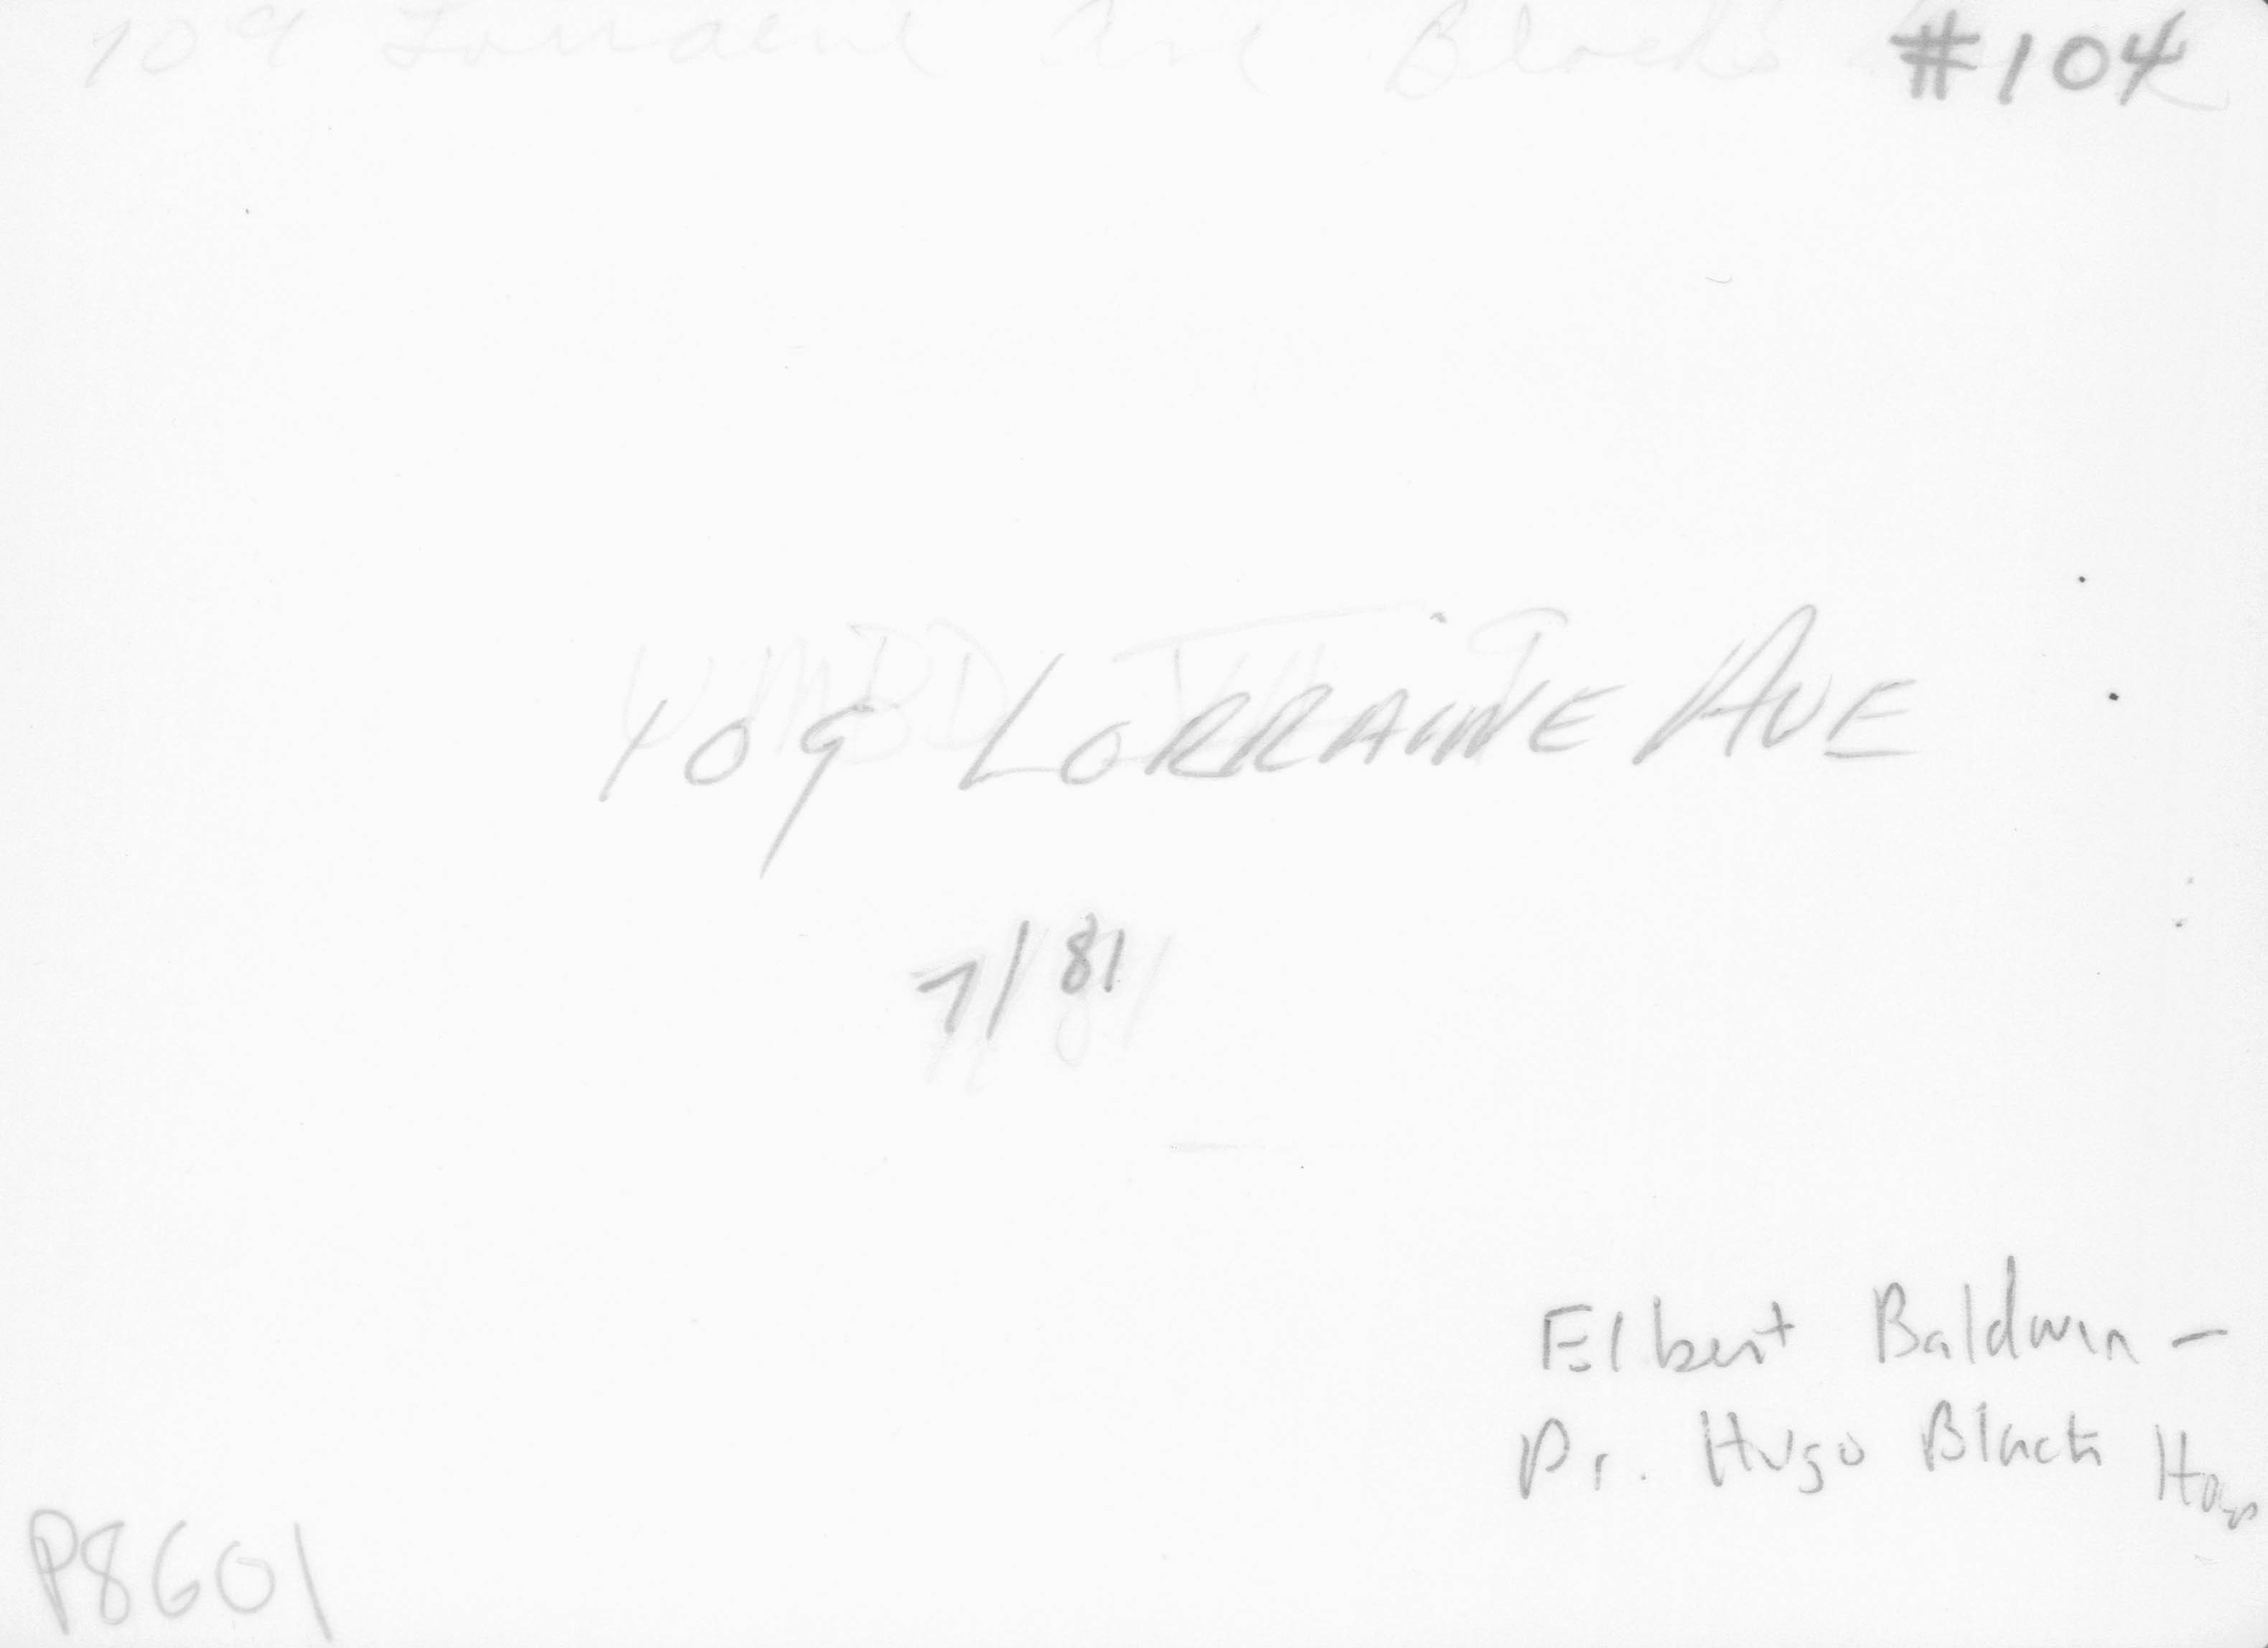 109 Lorraine Ave Black
#104
109 LORRAINE AVE
7/81
Elbert Baldwin –
Dr. Hugo Black House
P8601